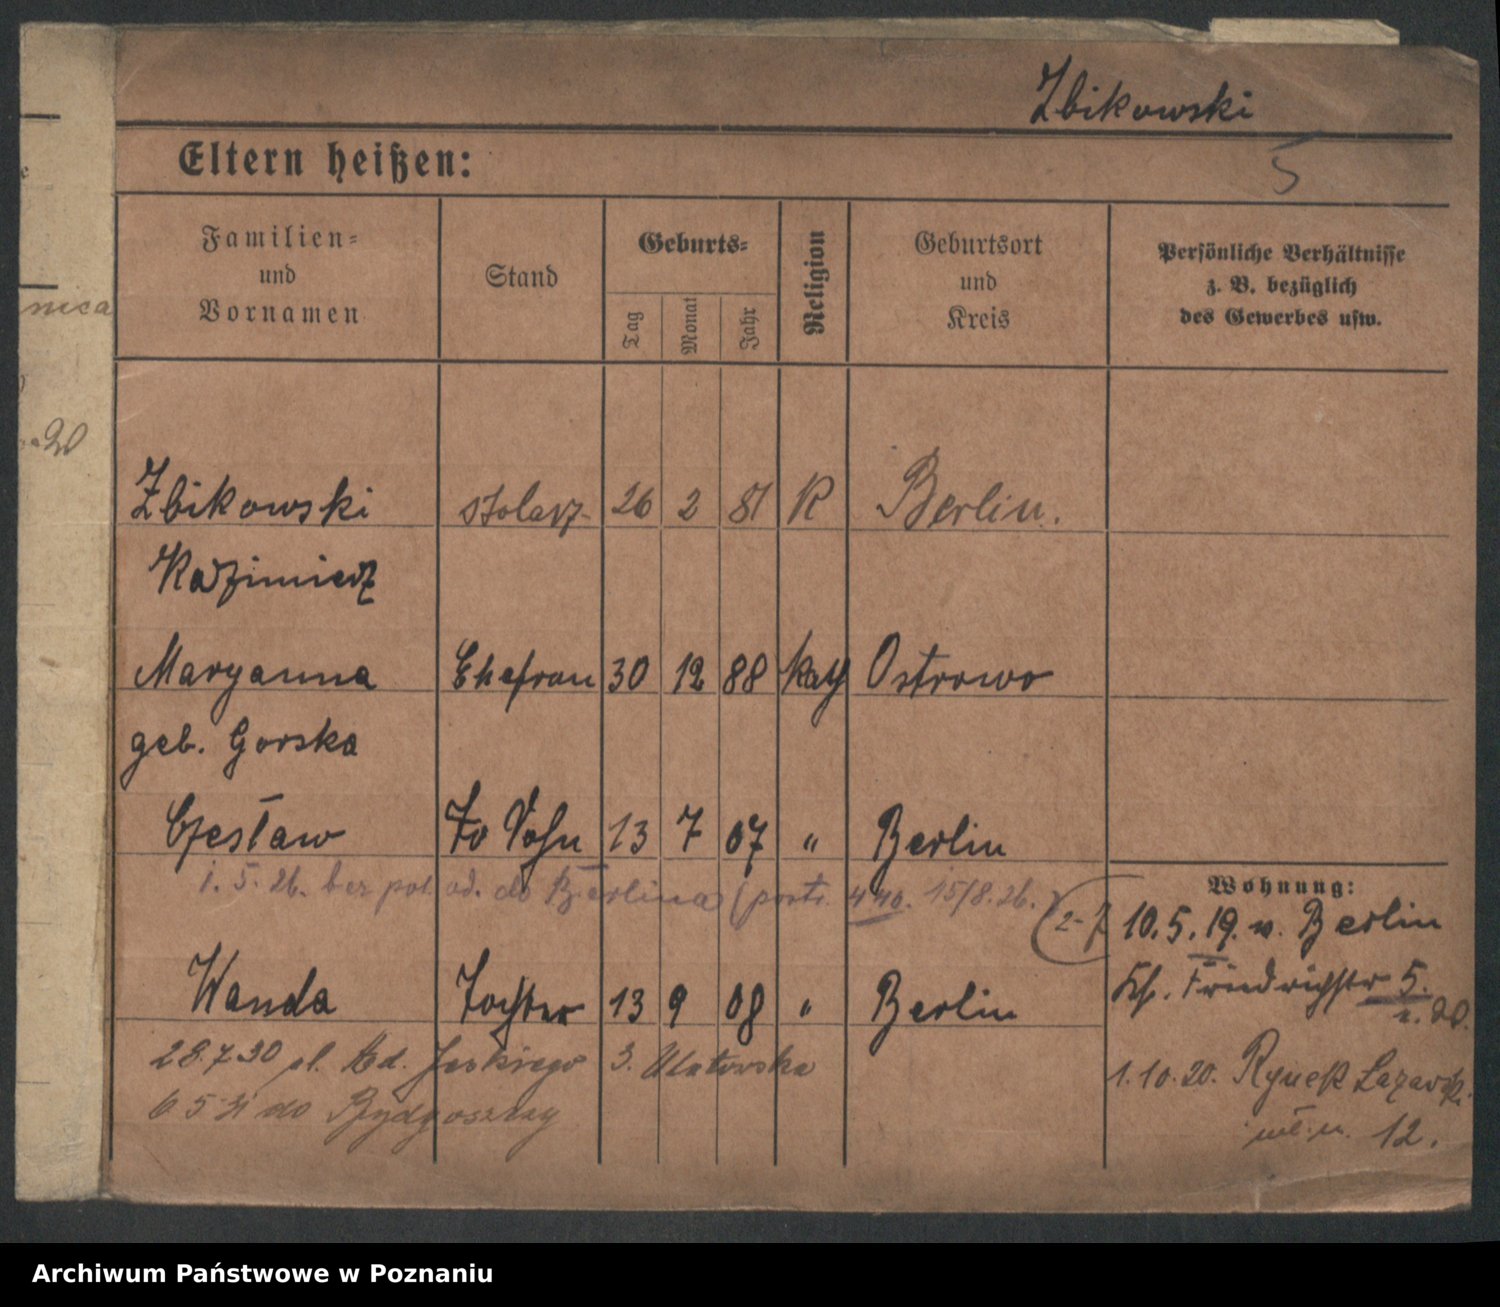 Zbikowski
5
Eltern heißen:
Familien=
und
Vornamen
Stand
Geburts=
Tag
Monat
Jahr
Religion
Geburtsort
und
Kreis
Persönliche Verhältnisse
z. B. bezüglich
des Gewerbes usw.
nica
20
Zbikowski stolarz 26 2 81 R Berlin.
Kazimierz
Maryanna Ehefrau 30 12 88 Kath Ostrowo
geb. Gorska
Czesław Sohn 13 7 07 " Berlin
1.5.26. bez pol. od. do Berlina (portr. 15/8.26.)
Wohnung:
10.5.19. v. Berlin
Wanda Tochter 13 9 08 " Berlin
Friedrichstr 5.
28.7.30 pl. 3.
1.10.20. Rynek Łazarski
6 5 31 do Bydgoszczy
12.
Archiwum Państwowe w Poznaniu